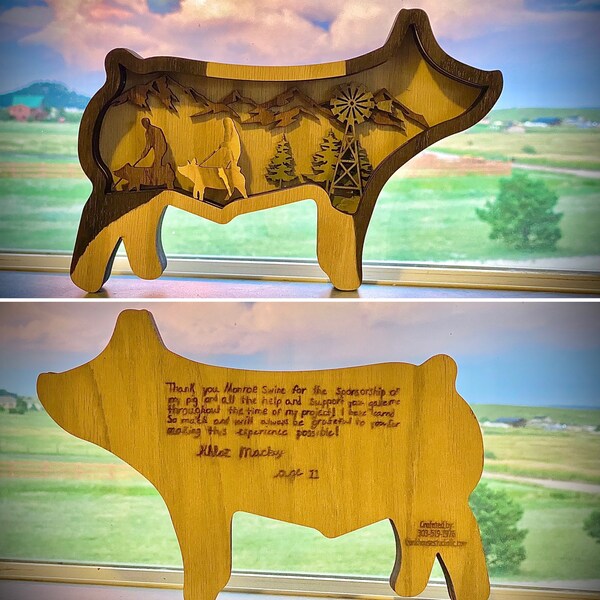 Thank you Monroe Swine for the sponsorship of
my pig and all the help and support you gave me
throughout the time of my project! I have learned
So much and will always be grateful to you for
making this experience possible!
Khloe Macky
age 11
Crafted by:
303-519-2976